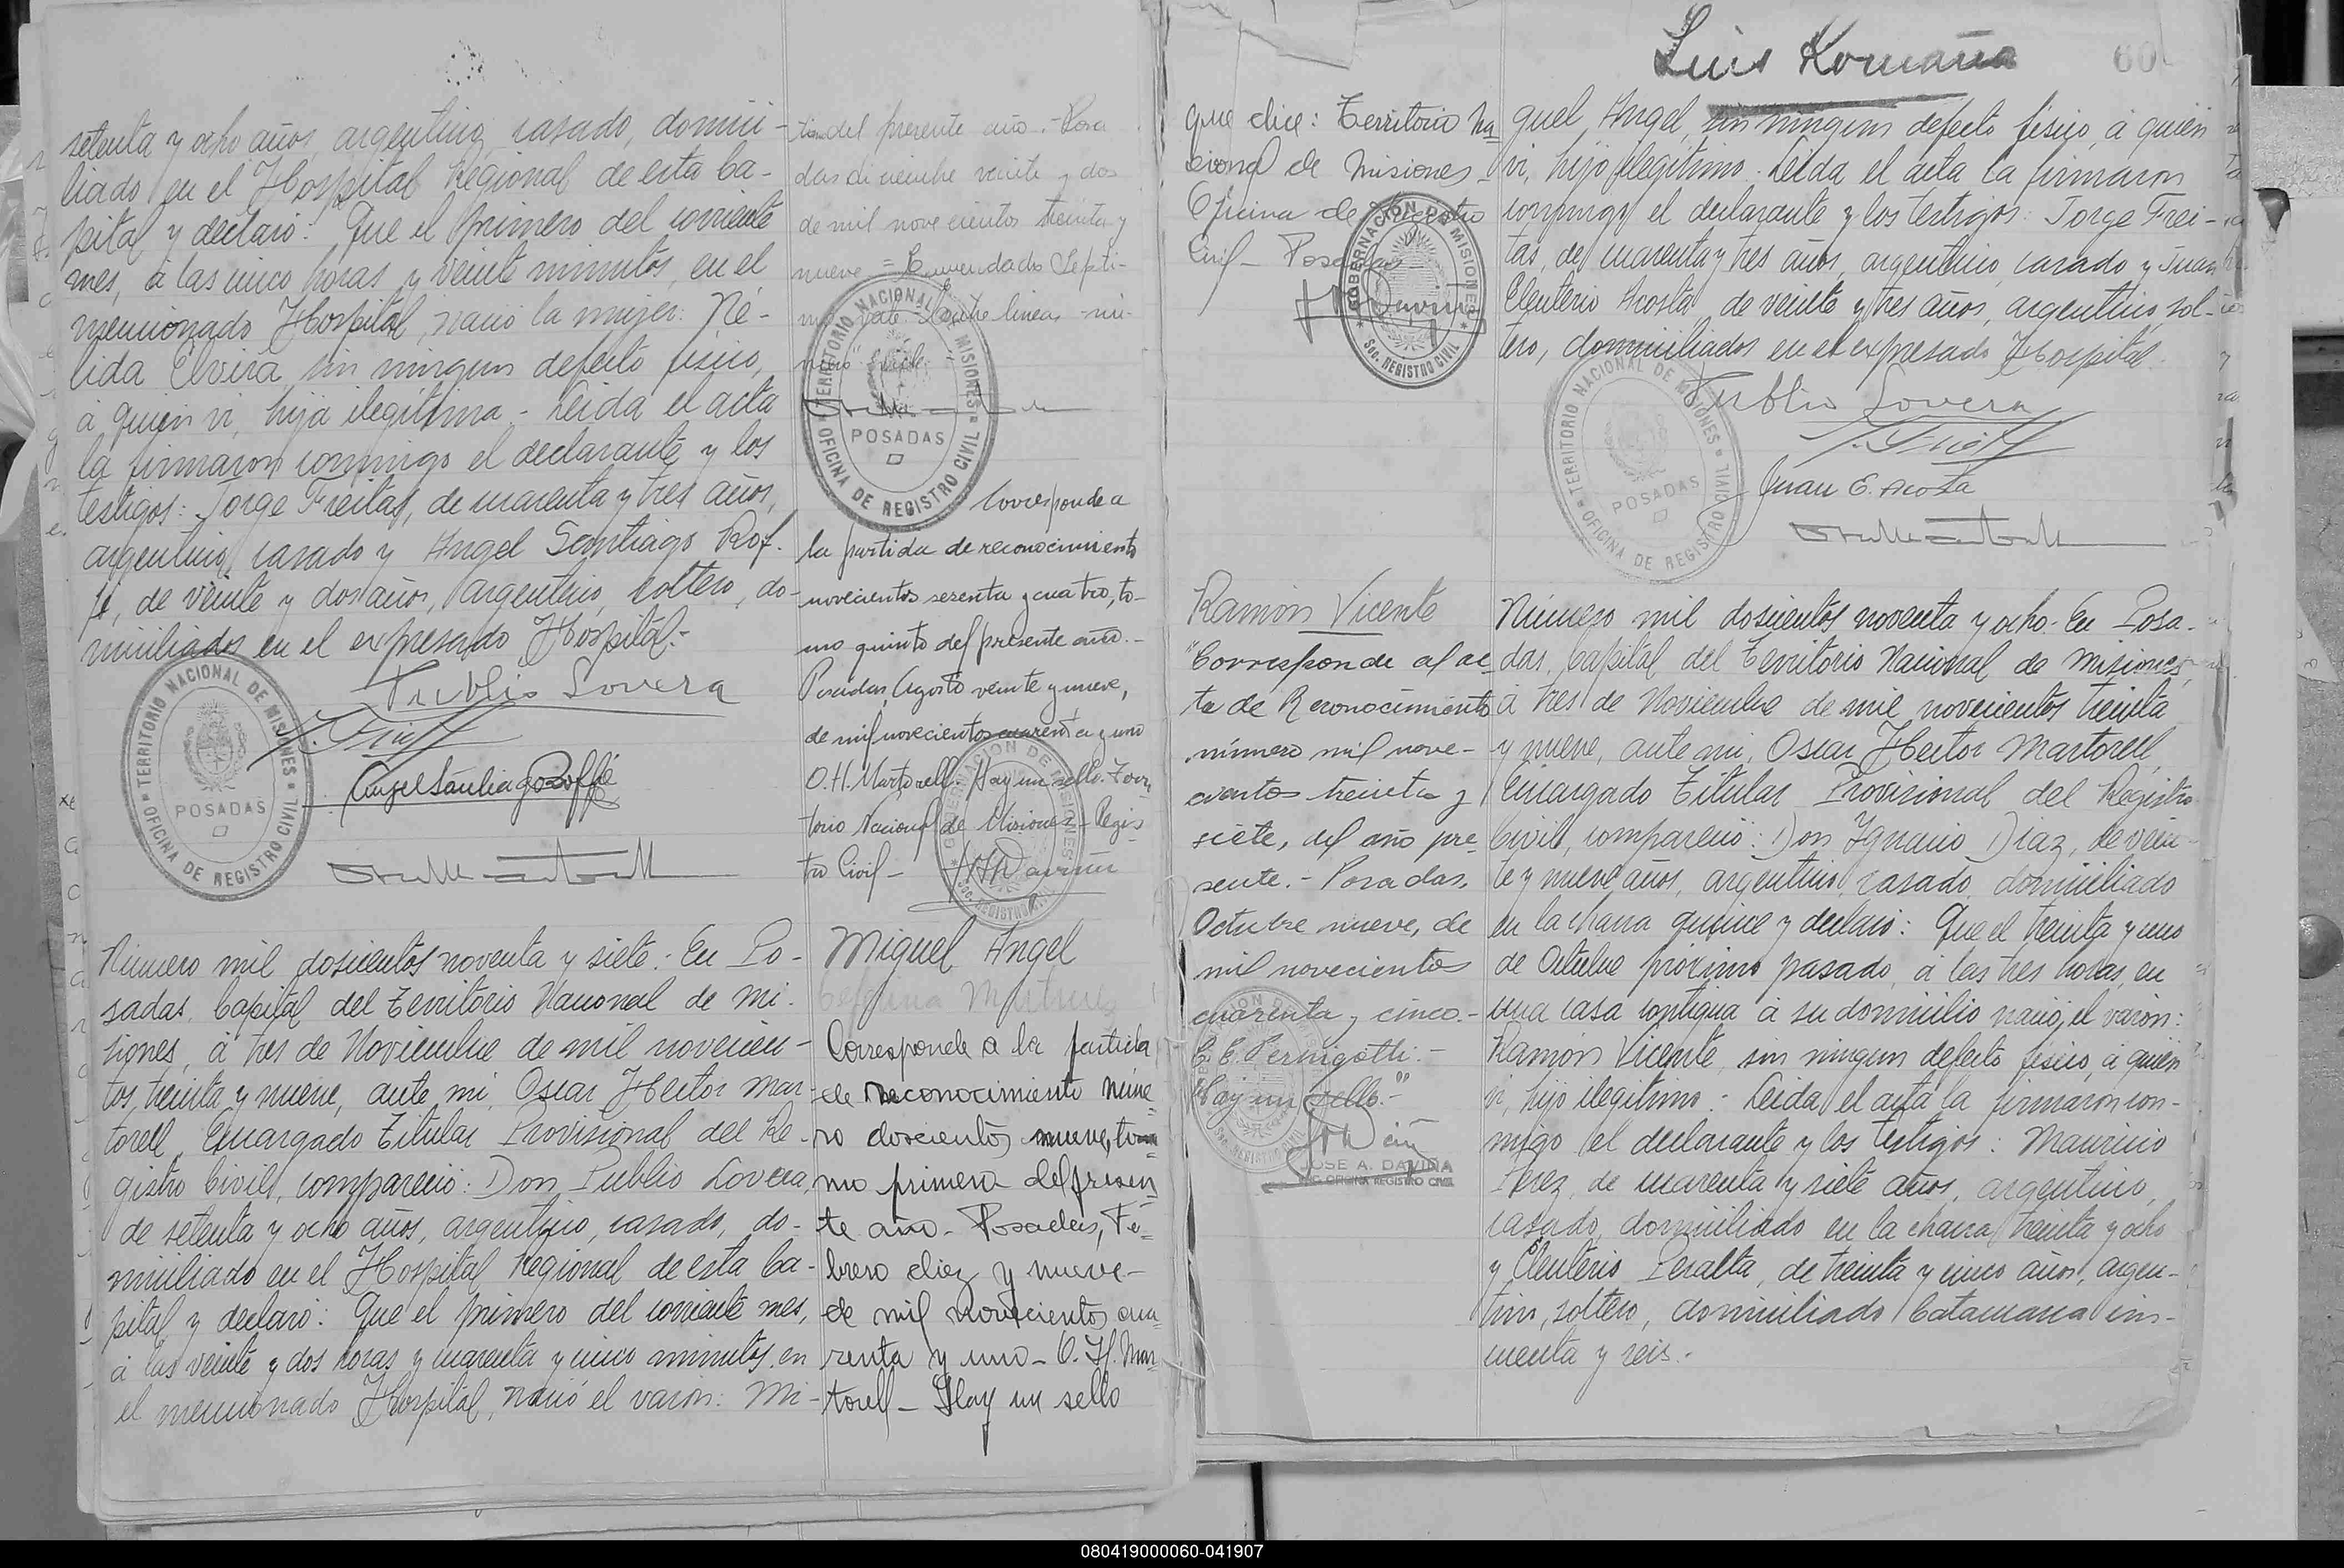 setenta y ocho años, argentino, casado, domici-
liado en el Hospital Regional de esta Ca-
pital y declaró: Que el primero del corriente
mes, á las cinco horas y veinte minutos, en el
mencionado Hospital, nació la mujer: Né-
lida Elvira, sin ningun defecto fisico,
á quién vi, hija ilegítima - Leida el acta
la firmaron conmigo el declarante y los
testigos: Jorge Freitas, de cuarenta y tres años,
argentino, casado y Angel Santiago Rof-
fé, de veinte y dos años, argentino, soltero, do-
miciliados en el expresado Hospital.-
Publio Lovera
J. Freitas
Angel Santiago Roffé
TERRITORIO NACIONAL DE MISIONES
POSADAS
OFICINA DE REGISTRO CIVIL
Número mil doscientos noventa y siete: En Po-
sadas, Capital del Territorio Nacional de Mi-
siones, á tres de Noviembre de mil novecien-
tos treinta y nueve, ante mi, Oscar Hector Mar-
torell, Encargado Titular Provisional del Re-
gistro Civil, compareció: Don Publio Lovera,
de setenta y ocho años, argentino, casado, do-
miciliado en el Hospital Regional de esta Ca-
pital, y declaró: Que el primero del corriente mes,
á las veinte y dos horas y cuarenta y cinco minutos, en
el mencionado Hospital, nació el varón: Mi-
del presente año.- Posa
das diciembre veinte y dos
de mil novecientos treinta y
nueve = Enmendado Septi-
mo vale - Entre lineas - nú-
mero" vale
TERRITORIO NACIONAL DE MISIONES
POSADAS
OFICINA DE REGISTRO CIVIL
Corresponde a
la partida de reconocimiento
novecientos sesenta y cuatro, to-
mo quinto del presente año.-
Posadas, Agosto veinte y nueve,
de mil novecientos cuarenta y uno
O.H. Martorell. Hay un sello. Terri
torio Nacional de Misiones - Regis
tro Civil -
Miguel Angel
Corresponde a la partida
de reconocimiento núme
ro doscientos nueve, to-
mo primero del presen
te año - Posadas, Fe-
brero diez y nueve -
de mil novecientos cua
renta y uno - O. H. Mar
torell - Hay un sello
Luis Romaña
60
que dice: Territorio Na
cional de Misiones -
Oficina de Registro
Civil - Posadas -
GOBERNACION DE MISIONES
Sec. REGISTRO CIVIL
guel Angel, sin ningun defecto fisico, á quién
vi, hijo ilegítimo - Leida el acta la firmaron
conmigo el declarante y los testigos: Jorge Frei-
tas, de cuarenta y tres años, argentino, casado y Juan
Eleuterio Acosta, de veinte y tres años, argentino, sol-
tero, domiciliados en el expresado Hospital.
Publio Lovera
J. Freitas
Juan E. Acosta
TERRITORIO NACIONAL DE MISIONES
POSADAS
OFICINA DE REGISTRO CIVIL
Ramón Vicente
"Corresponde al ac
ta de Reconocimiento
número mil nove-
cientos treinta y
siete, del año pre-
sente.- Posadas,
Octubre nueve, de
mil novecientos
cuarenta y cinco.-
C. C. Pernigotti.-
Hay un sello.-"
JOSE A. DAVIÑA
Número mil doscientos noventa y ocho. En Posa-
das, Capital del Territorio Nacional de Misiones,
á tres de Noviembre de mil novecientos treinta
y nueve, ante mi, Oscar Hector Martorell,
Encargado Titular Provisional del Registro
Civil, compareció: Don Ignacio Diaz, de vein-
te y nueve años, argentino, casado, domiciliado
en la chacra quince y declaró: Que el treinta y uno
de Octubre próximo pasado, á las tres horas, en
una casa contigua á su domicilio nació, el varón:
Ramón Vicente, sin ningun defecto fisico, á quién
vi, hijo ilegítimo - Leida el acta la firmaron con-
migo el declarante y los testigos: Mauricio
Perez, de cuarenta y siete años, argentino,
casado, domiciliado en la chacra treinta y ocho
y Eleuterio Peralta, de treinta y cinco años, argen-
tino, soltero, domiciliado Catamarca cin-
cuenta y seis.-
080419000060-041907